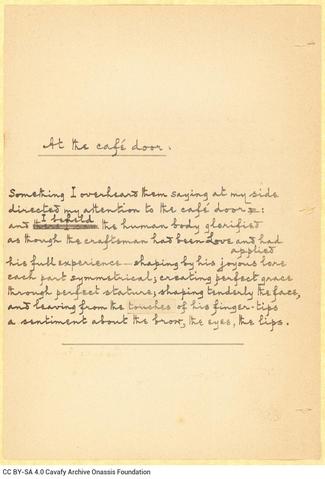 At the café door.
Something I overheard them saying at my side
directed my attention to the café door:
I behild
and the human body glorified
as though the craftsman had been Love and had
applied
his full experience - shaping by his joyous lore
each part symmetrical; creating perfect grace
through perfect stature; shaping tenderly the face,
and leaving from the touches of his finger-tips
a sentiment about the brow, the eyes, the lips.
CC BY-SA 4.0 Cavafy Archive Onassis Foundation